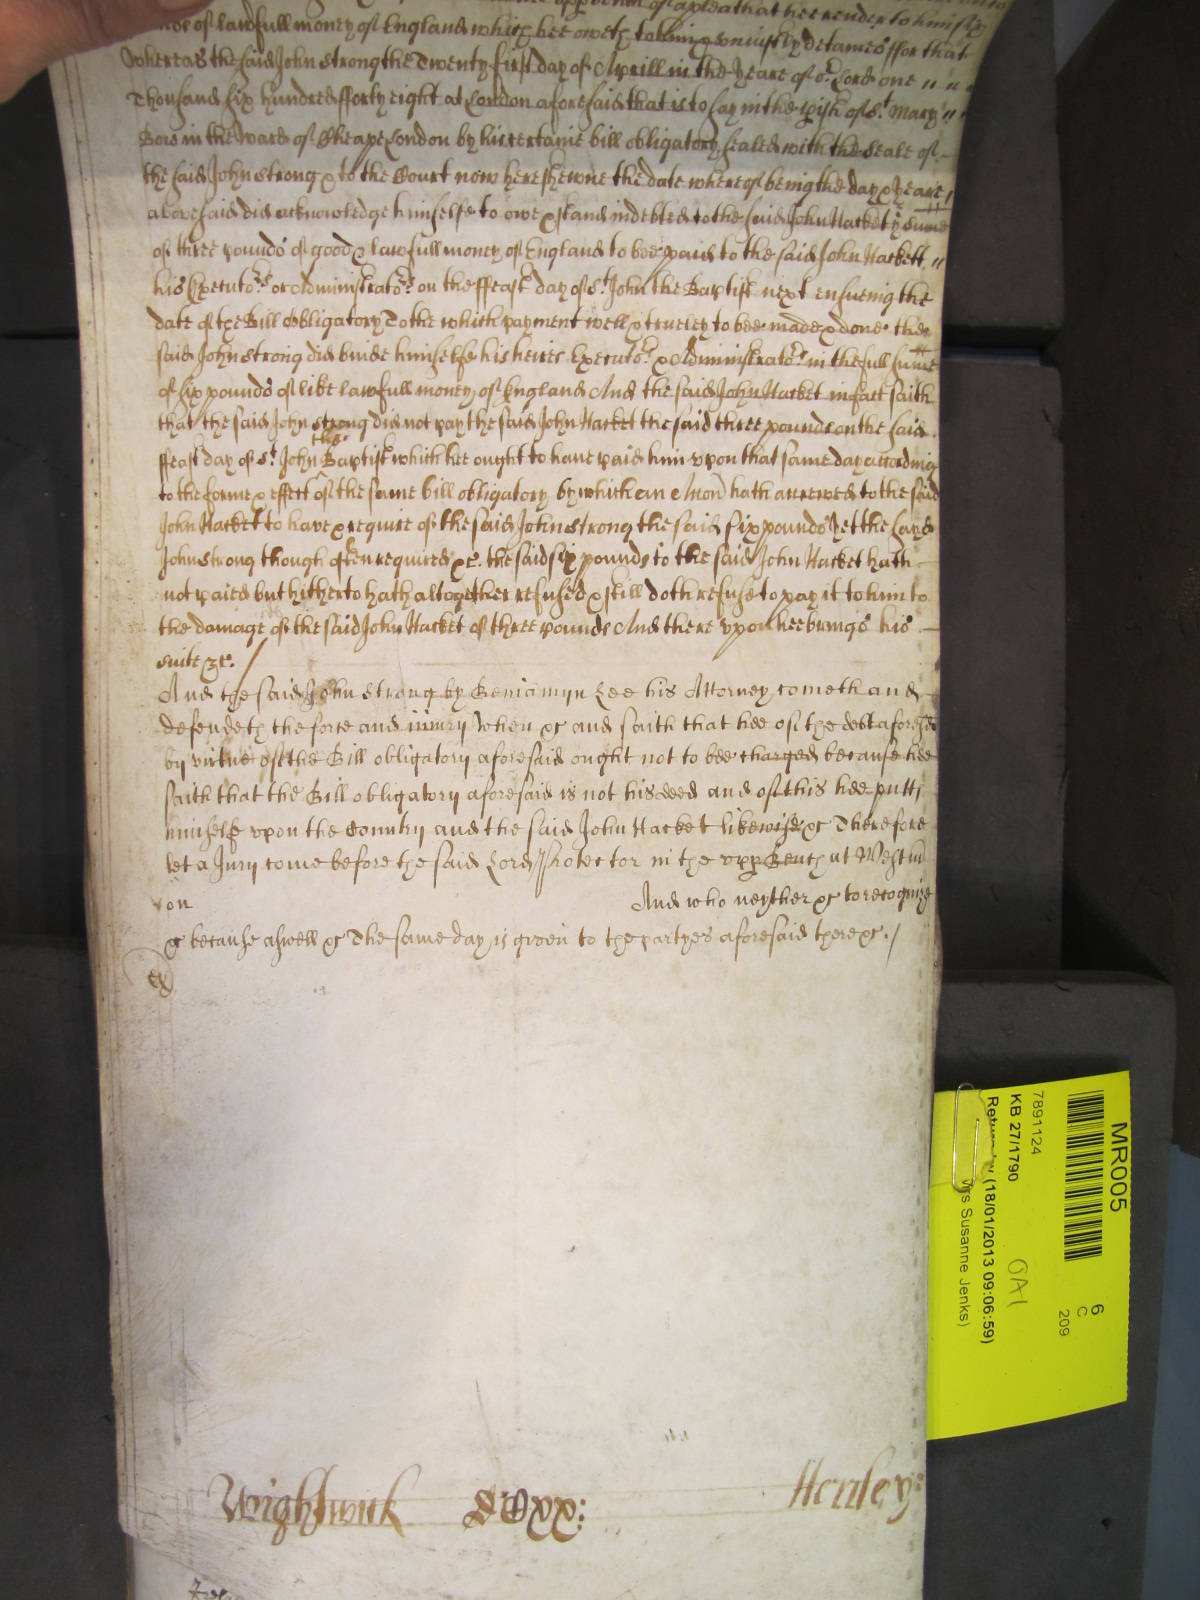 of a plea that hee render to him six
of lawfull money of England which hee oweth to him & uniustly detaines ffor that
Whereas the said John Strong the Twenty first day of Aprill in the yeare of or. Lord one " " "
Thousand six hundred fforty eight at London aforesaid that is to say in the pish of St. Mary " "
Bow in the ward of Cheape London by his certaine bill obligatory sealed with the seale of
the said John Strong & to the Court now here shewne the date whereof being the day & yeare
abovesaid did acknowledge himselfe to owe & stand indebted to the said John Hackett ye sume
of three pounds of good & lawfull money of England to bee paid to the said John Hackett "
his Executors. or Administrators. on the ffeast day of St. John the Baptist next ensueing the
date of the Bill obligatory To the which payment well & trueley to bee made & done the
said John Strong did binde himselfe his heires Executors. & Administrators. in the full sume
of six pounds of like lawfull money of England And the said John Hacket in fact saith
that the said John Strong did not pay the said John Hacket the said three pounds on the said
the
ffeast day of St. John Baptist which hee ought to have paid him upon that same day according
to the forme & effect of the same bill obligatory by which an Accon hath accrewed to the said
John Hacket to have & require of the said John Strong the said six pounds Yet the said
John Strong though often required &c. the said six pounds to the said John Hacket hath
not paied but hitherto hath altogether refused & still doth refuse to pay it to him to
the damage of the said John Hacket of three pounds And there upon hee brings his
suite &c. /
And the said John Strong by Beniamyn Lee his Attorney cometh and
defendeth the force and iniury when &c and saith that hee of the debt aforesd
by virtue of the Bill obligatory aforesaid ought not to bee charged because hee
saith that the Bill obligatory aforesaid is not his deed and of this hee putts
himselfe upon the Country and the said John Hacket likewise &c Therefore
let a Jury come before the said Lord Protector in the upp Bench at Westm
on And who neyther &c to recognize
& because aswell &c The same day is given to the partyes aforesaid there &c. /
Ex
Wightwick Henley:
MR005
6
C
209
7891124
KB 27/1790
OA1
Return by (18/01/2013 09:06:59)
Mrs Susanne Jenks)